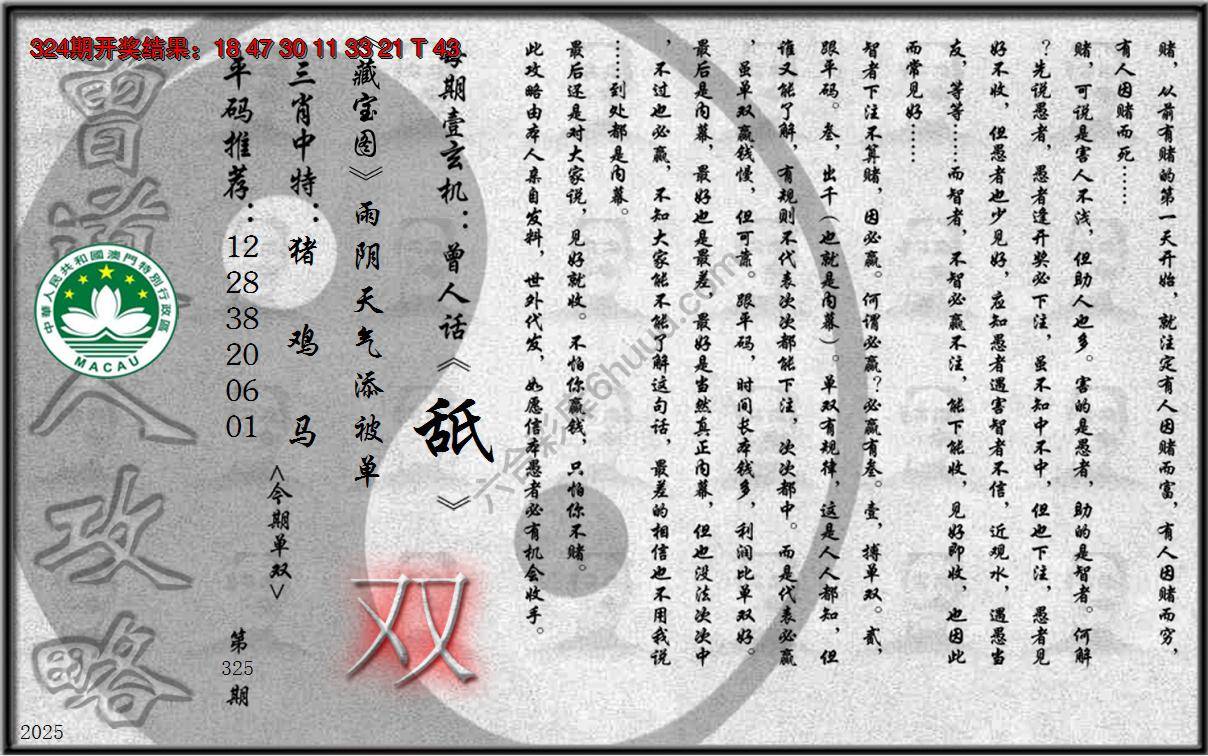 324期开奖结果：18 47 30 11 33 21 T 43
赌，从前有赌的第一天开始，就注定有人因赌而富，有人因赌而穷，
有人因赌而死……
赌，可说是害人不浅，但助人也多。害的是愚者，助的是智者。何解
？先说愚者，愚者逢开奖必下注，虽不知中不中，但也下注，愚者见
好不收，但愚者也少见好，应知愚者遇害智者不信，近观水，遇愚当
友，等等……而智者，不智必赢不注，能下能收，见好即收，也因此
而常见好……
智者下注不算赌，因必赢。何谓必赢？必赢有叁。壹，搏单双。贰，
跟平码。叁，出千（也就是内幕）。单双有规律，这是人人都知，但
谁又能了解，有规则不代表次次都能下注，次次都中。而是代表必赢
，虽单双赢钱慢，但可靠。跟平码，时间长本钱多，利润比单双好。
最后是内幕，最好也是最差，最好是当然真正内幕，但也没法次次中
，不过也必赢，不知大家能不能了解这句话，最差的相信也不用我说
……到处都是内幕。
最后还是对大家说，见好就收。不怕你赢钱，只怕你不赌。
此攻略由本人亲自发料，世外代发，如愿信本愚者必有机会收手。
每期壹玄机：曾人话《舐》
《藏宝图》雨阴天气添被单
三肖中特：猪 鸡 马
平码推荐：12 28 38 20 06 01
<今期单双>
双
第325期
曾道人攻略
中華人民共和國澳門特別行政區
MACAU
2025